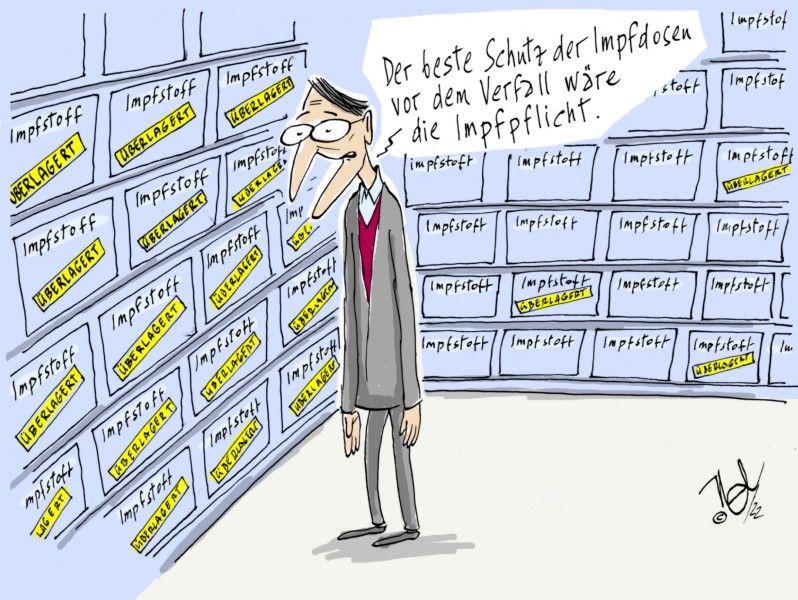 Der beste Schutz der Impfdosen
vor dem Verfall wäre
die Impfpflicht.
Impfstoff
ÜBERLAGERT
Impfstoff
ÜBERLAGERT
Impfstoff
ÜBERLAGERT
Impfstoff
ÜBERLAGERT
Impfstoff
ÜBERLAGERT
Impfstoff
ÜBERLAGERT
Impfstoff
ÜBERLAGERT
Impfstoff
ÜBERLAGERT
Impfstoff
ÜBERLAGERT
Impfstoff
ÜBERLAGERT
Impfstoff
ÜBERLAGERT
Impfstoff
ÜBERLAGERT
Impfstoff
ÜBERLAGERT
mpfstoff
LAGERT
Impfstoff
ÜBERLAGERT
Impfstoff
ÜBERLAGERT
Impfstoff
Impfstoff
Impfstoff
Impfstoff
Impfstoff
Impfstoff
ÜBERLAGERT
Impfstoff
Impfstoff
Impfstoff
Impfstoff
Impfstoff
Impfstoff
ÜBERLAGERT
Impfstoff
Impfstoff
Impfstoff
Impfstoff
Impfstoff
Impfstoff
ÜBERLAGERT
©
/22